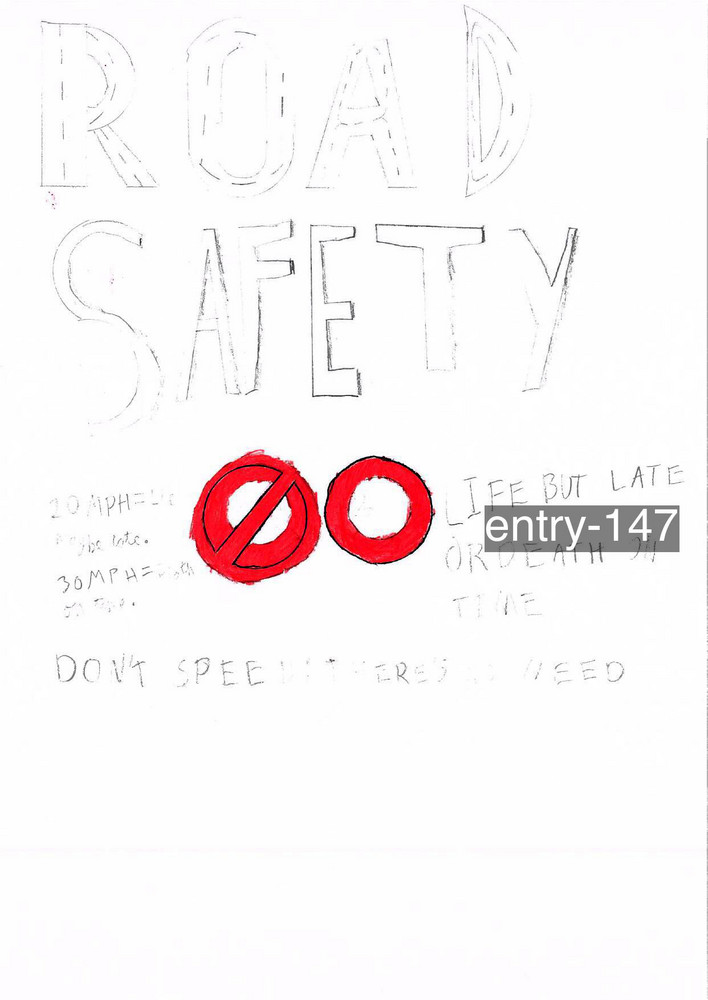 ROAD
SAFETY
20 MPH = Life
maybe late.
30 MPH = Death
on time.
LIFE BUT LATE
OR DEATH ON
TIME
entry-147
DON'T SPEED THERE'S NO NEED